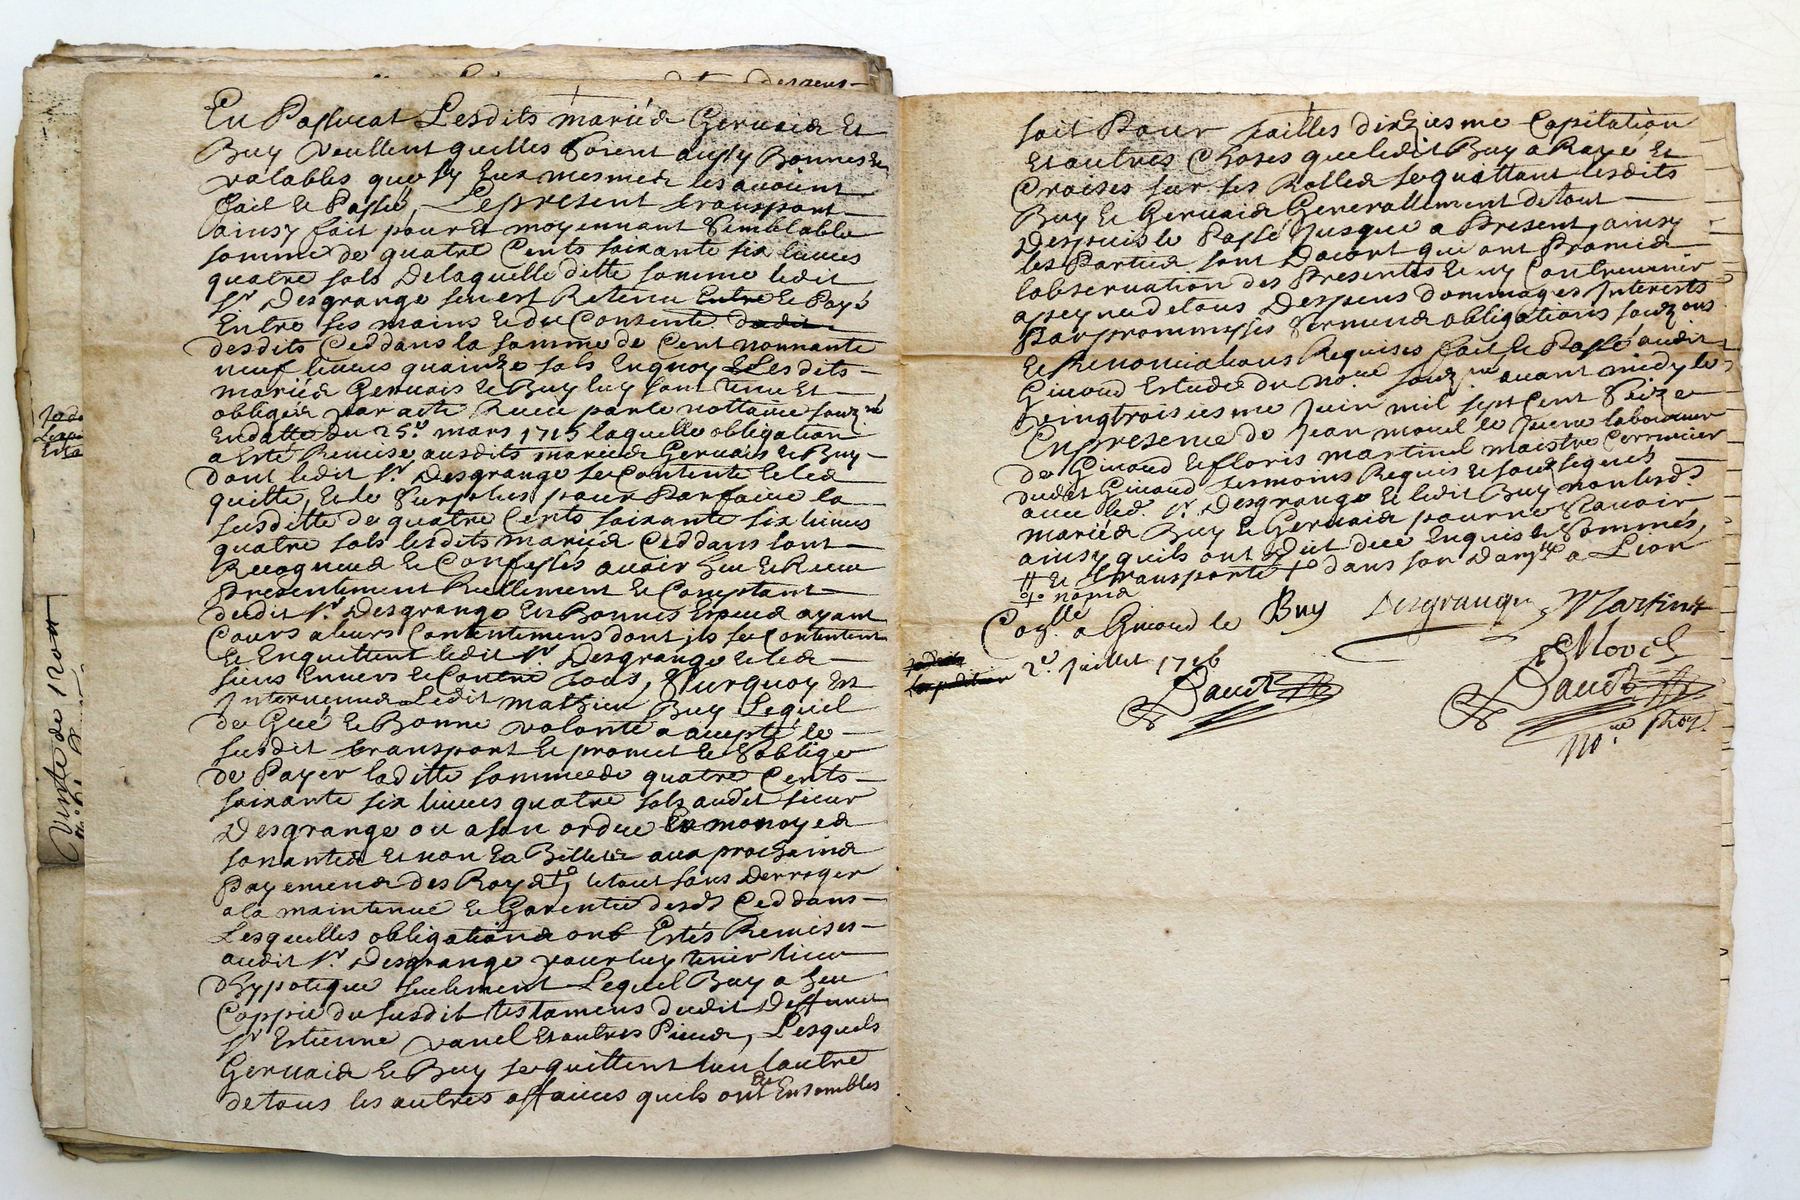 En Passucat Lesdits mariés Gervais Et
Buy veullent quelles Soient aussy Bonnes Et
valables que sy Eux mesmes les avoient
fait & Passé, Le present transport
ainsy fait pour Et moyennant Semblable
somme de quatre Cents soixante six livres
quatre sols De laquelle ditte somme ledit
Sr Desgrange sen est Retenu Entre & Payé
Entre ses mains & du Consente dudit
desdits Ceddans la somme de Cent nonnante
neuf livres quainze sols Enquoy & Lesdits
mariés Gervais & Buy luy sont tenu Et
obliges par acte Receu par le nottaire souzné
En datte du 25e mars 1715 laquelle obligation
a Esté Remise ausdits mariés Gervais & Buy
dont ledit Sr Desgrange se Contente & les
quitte, & le Surplus pour Parfaire la
susditte de quatre Cents soixante six livres
quatre sols lesdits mariés Ceddans sont
Recogneus & Confessés avoir heu & Receu
Presentement Reellement & Comptant
dudit Sr Desgrange En Bonnes Especes ayant
Cours a leurs Contentemens dont ils se Contentent
& Enquittent ledit Sr Desgrange & les
siens Envers & Contre tous, Surquoy Est
Intervenus Ledit mathieu Buy Lequel
de Gué & Bonne volonté a accepté le
susdit transport & promet & Soblige
de Payer laditte somme de quatre Cents
soixante six livres quatre sols audit sieur
Desgrange ou a son ordre En monoyes
sonantes et non En Billets aux prochains
Payemens des Roys +o, le tout sans Derroger
a la maintenue & Garentie desds Ceddans
Lesquelles obligations ont Estés Remises
audit Sr Desgrange pour luy tenir lieu
dhypoteque seulement Lequel Buy a heu
Coppie du susdit testament dudit Deffunct
Sr Estienne vanel Et autres Pieces, Lesquels
Gervais & Buy se quittent lun lautre
de tous les autres affaires quils ont Eu Ensembles
soit Pour tailles dixziesme Capitation
Et autres Choses que ledit Buy a Rayé Et
Croisés sur ses Rolles se quattant lesdits
Buy & Gervais Generallement de tout
Despuis le Passé Jusque a Present, ainsy
les Parties sont Dacort qui ont Promis
lobservation des Presentes & ny Contrevenir
a peyne de tous Despens dommages Interests
Par prommesses Sermens obligations souzmons
& Renonciations Requises fait & Passé audit
Givord Estude du nore souzné avant midy le
Vingtroisiesme Juin mil sept Cent Seize
En presence de Jean movel le Jeune laboureur
de Givord & floris martinet maistre Cerrurier
dudit Givord tesmoins Requis & souz signés
avec led. Sr Desgrange & ledit Buy non lesds
mariés Buy & Gervais pour ne Scavoir
ainsy quils ont dit dece Enquis & Sommés,
# & transporté +o dans son Domlle a Lion
+o nomis
Buy Desgrange Martinet
Conllé a Givord le
2e Juillet 1716
Movel
Daudé
Daudé
Nore Roy.
Vente de 120 ll